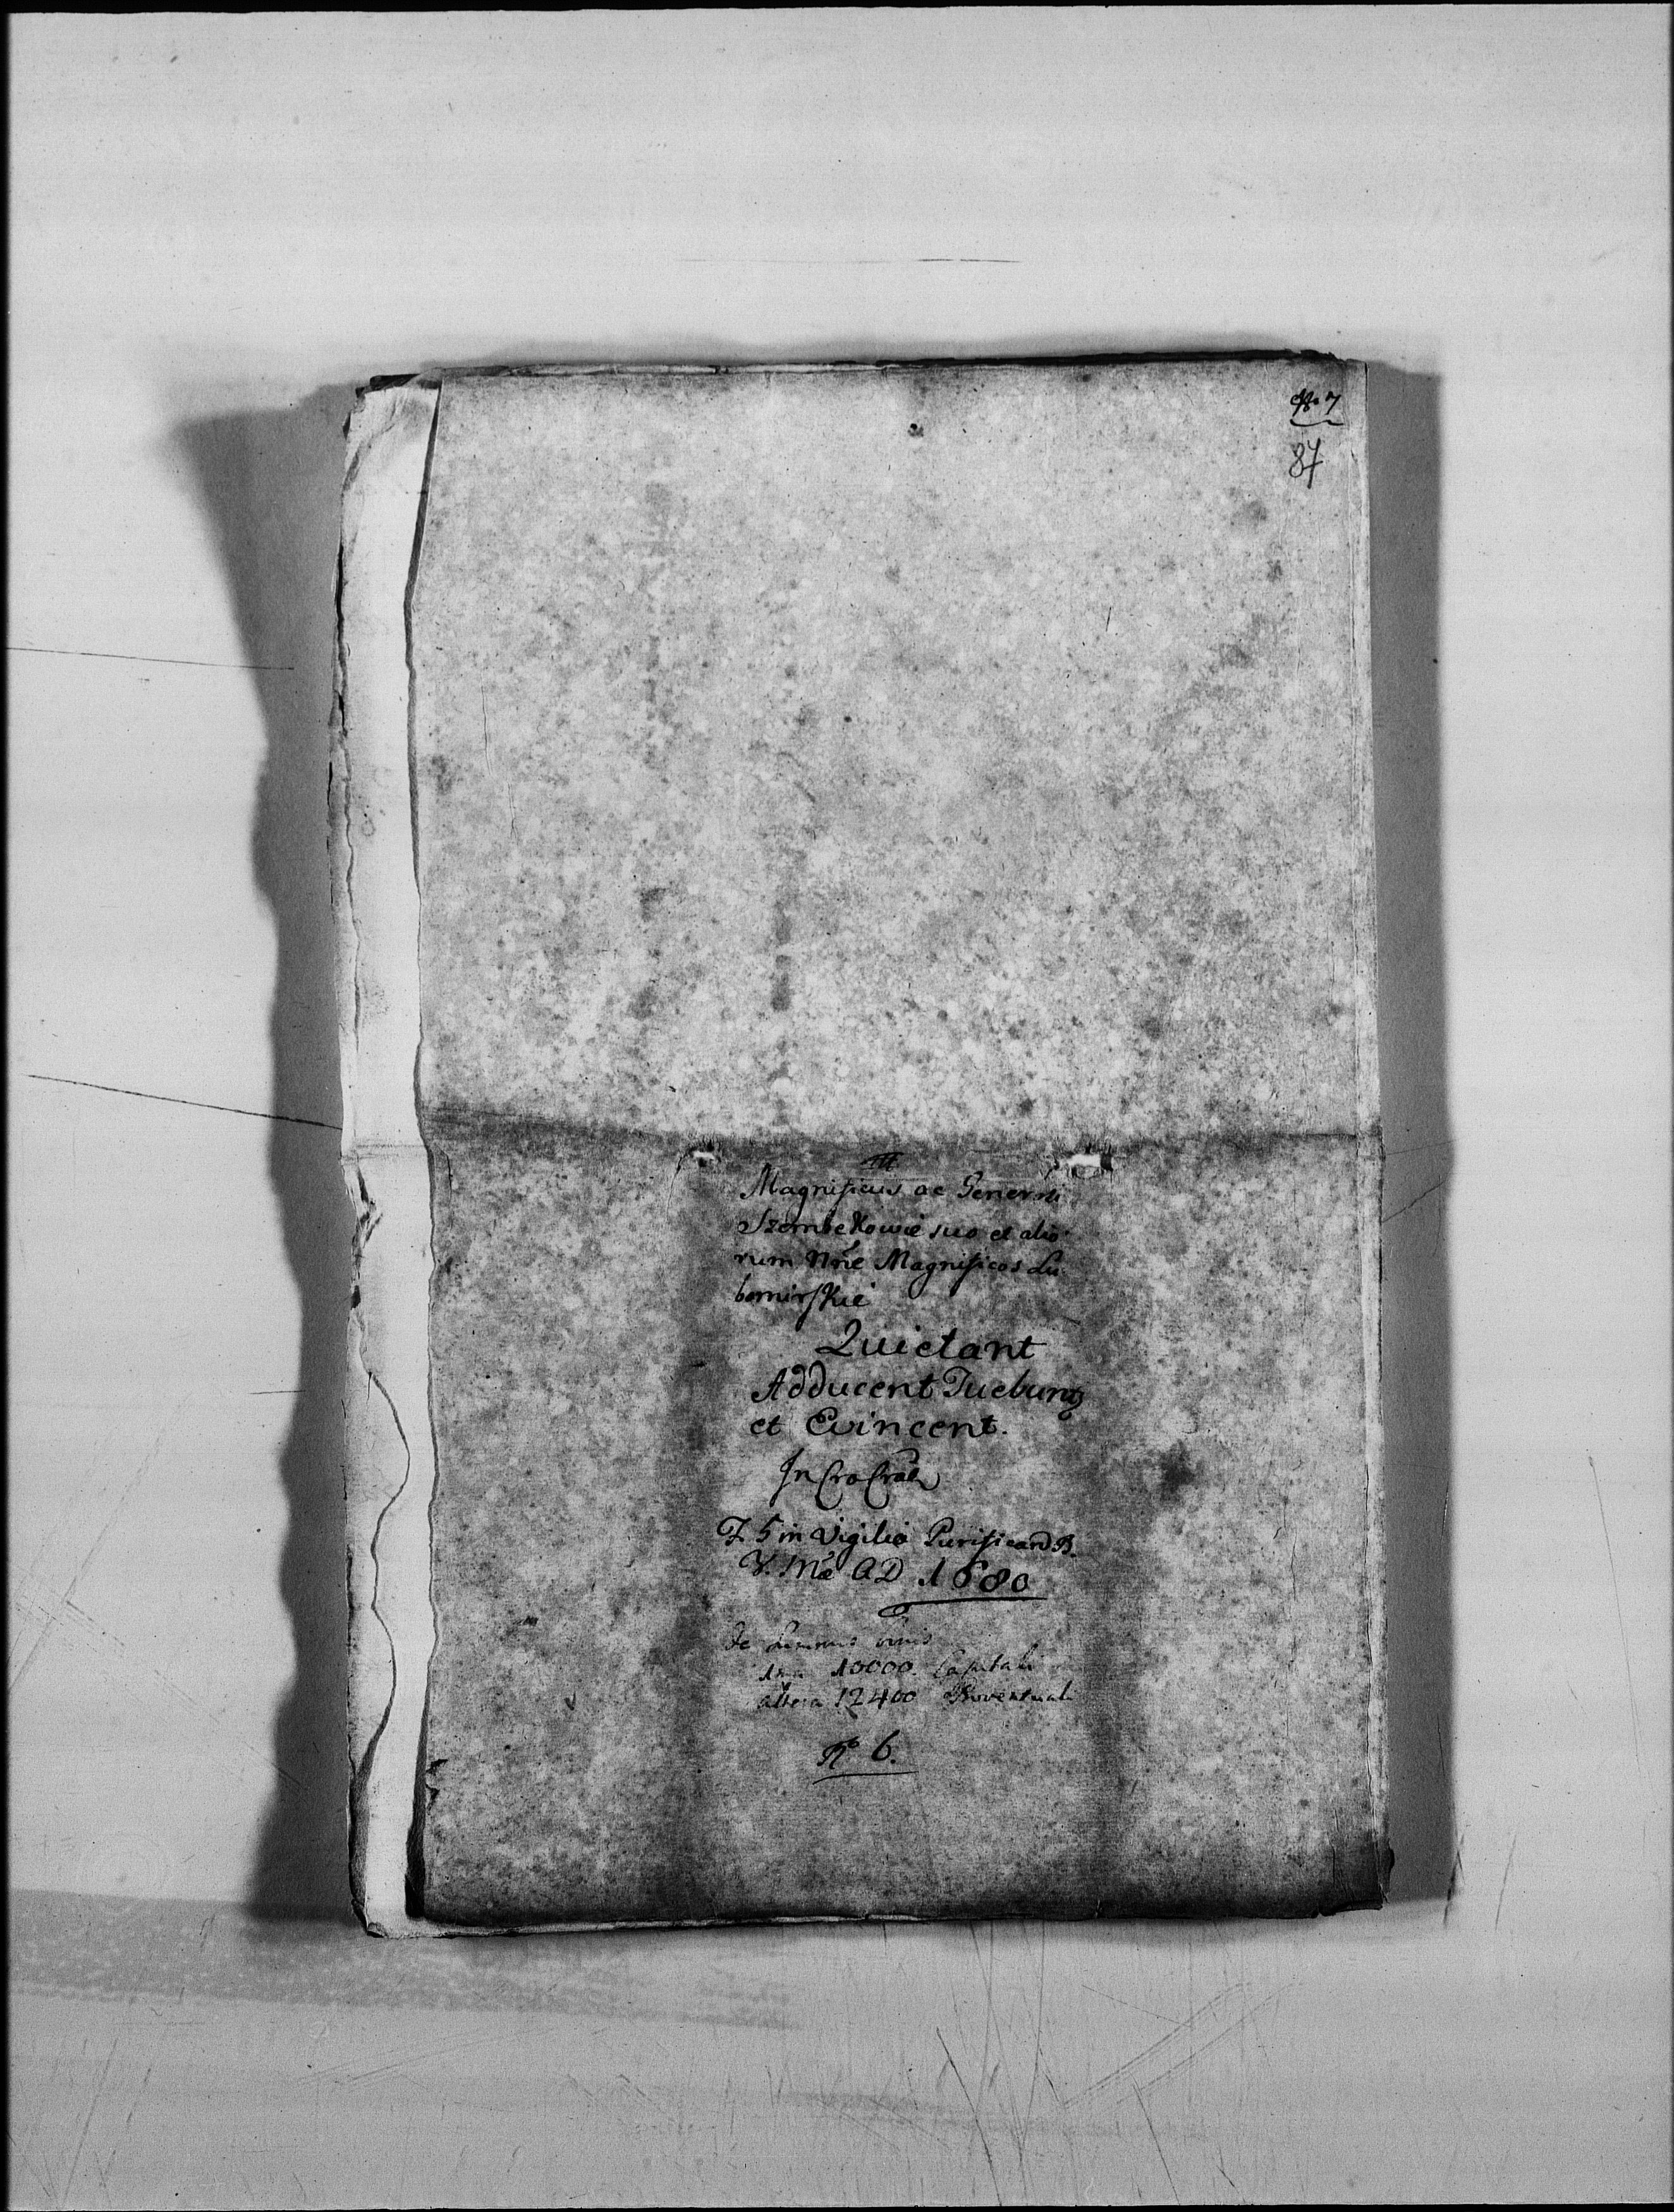 No 7
87
Magnificus ac Generosi
Szembekowie suo et alio-
rum Nne Magnificos Lu-
bomirskie
Quietant
Adducent Tuebunt
et Evincent.
In Cro Crac
F. 5 in Vigilia Purificand B.
V. Mae AD 1680
De summis
una 10000. Capitali
altera 12400 Proventual
No 6.